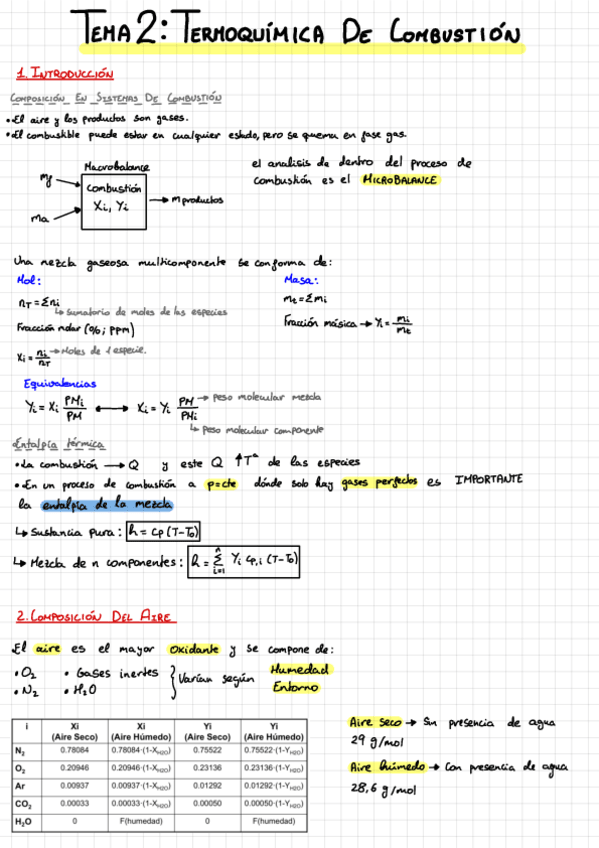 TEMA 2: TERMOQUÍMICA DE COMBUSTIÓN
1. INTRODUCCIÓN
COMPOSICIÓN EN SISTEMAS DE COMBUSTIÓN
• El aire y los productos son gases.
• El combustible puede estar en cualquier estado, pero se quema en fase gas.
Macrobalance
mf
combustión
Xi, Yi
ma
m productos
el analisis de dentro del proceso de
combustión es el MICROBALANCE
Una mezcla gaseosa multicomponente se conforma de:
Mol:
nT = Σni
↳ Sumatorio de moles de las especies
Fracción molar (%; ppm)
Xi = ni/nT → Moles de 1 especie.
Masa:
mt = Σmi
Fracción másica → Yi = mi/mt
Equivalencias
Yi = Xi PMi/PM ↔ Xi = Yi PM/PMi → Peso molecular mezcla
↳ Peso molecular componente
Entalpía térmica
• La combustión → Q y este Q ↑Tª de las especies
• En un proceso de combustión a p=cte dónde solo hay gases perfectos es IMPORTANTE
la entalpía de la mezcla
↳ Sustancia pura: h = cp (T-To)
↳ Mezcla de n componentes: h = Σ(i=1, n) Yi cp,i (T-To)
2. COMPOSICIÓN DEL AIRE
El aire es el mayor oxidante y se compone de:
• O2 • Gases inertes
• N2 • H2O
} Varían según
Humedad
Entorno
i Xi (Aire Seco) Xi (Aire Húmedo) Yi (Aire Seco) Yi (Aire Húmedo)
N2 0.78084 0.78084·(1-XH2O) 0.75522 0.75522·(1-YH2O)
O2 0.20946 0.20946·(1-XH2O) 0.23136 0.23136·(1-YH2O)
Ar 0.00937 0.00937·(1-XH2O) 0.01292 0.01292·(1-YH2O)
CO2 0.00033 0.00033·(1-XH2O) 0.00050 0.00050·(1-YH2O)
H2O 0 F(humedad) 0 F(humedad)
Aire seco → Sin presencia de agua
29 g/mol
Aire húmedo → Con presencia de agua
28,6 g/mol